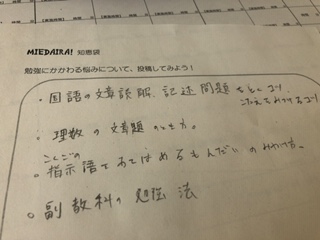 MIEDAIRA! 知恵袋
勉強にかかわる悩みについて、投稿してみよう！
・国語の文章読解、記述問題をとくコツ
こたえをみつけるコツ
・理数の文章題のとき方。
こくごの
・指示語であてはめるもんだいのみかけ方。
・副教科の勉強法